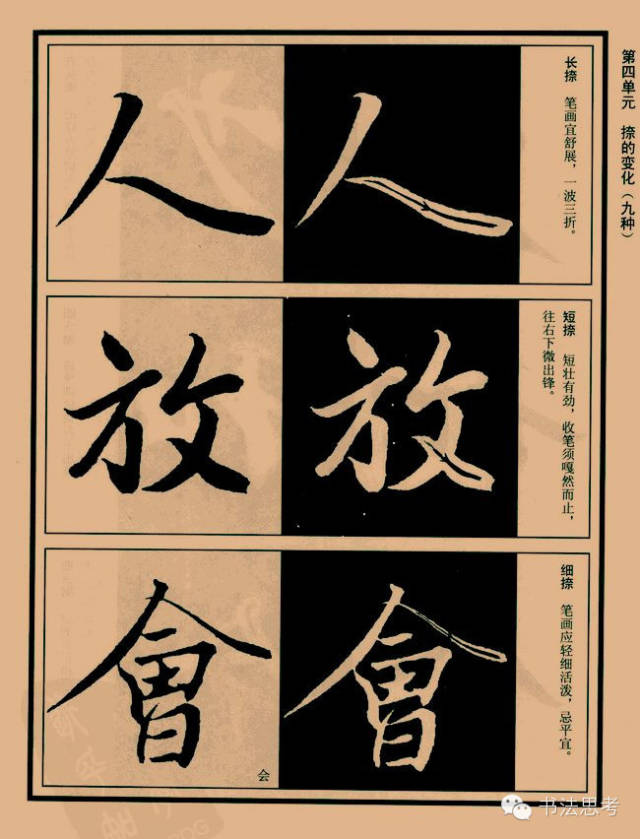 第四单元 捺的变化（九种）
长捺 笔画宜舒展，一波三折。
人 人
短捺 短壮有劲，收笔须嘎然而止，
往右下微出锋。
放 放
细捺 笔画应轻细活泼，忌平宜。
會 會
会
书法思考